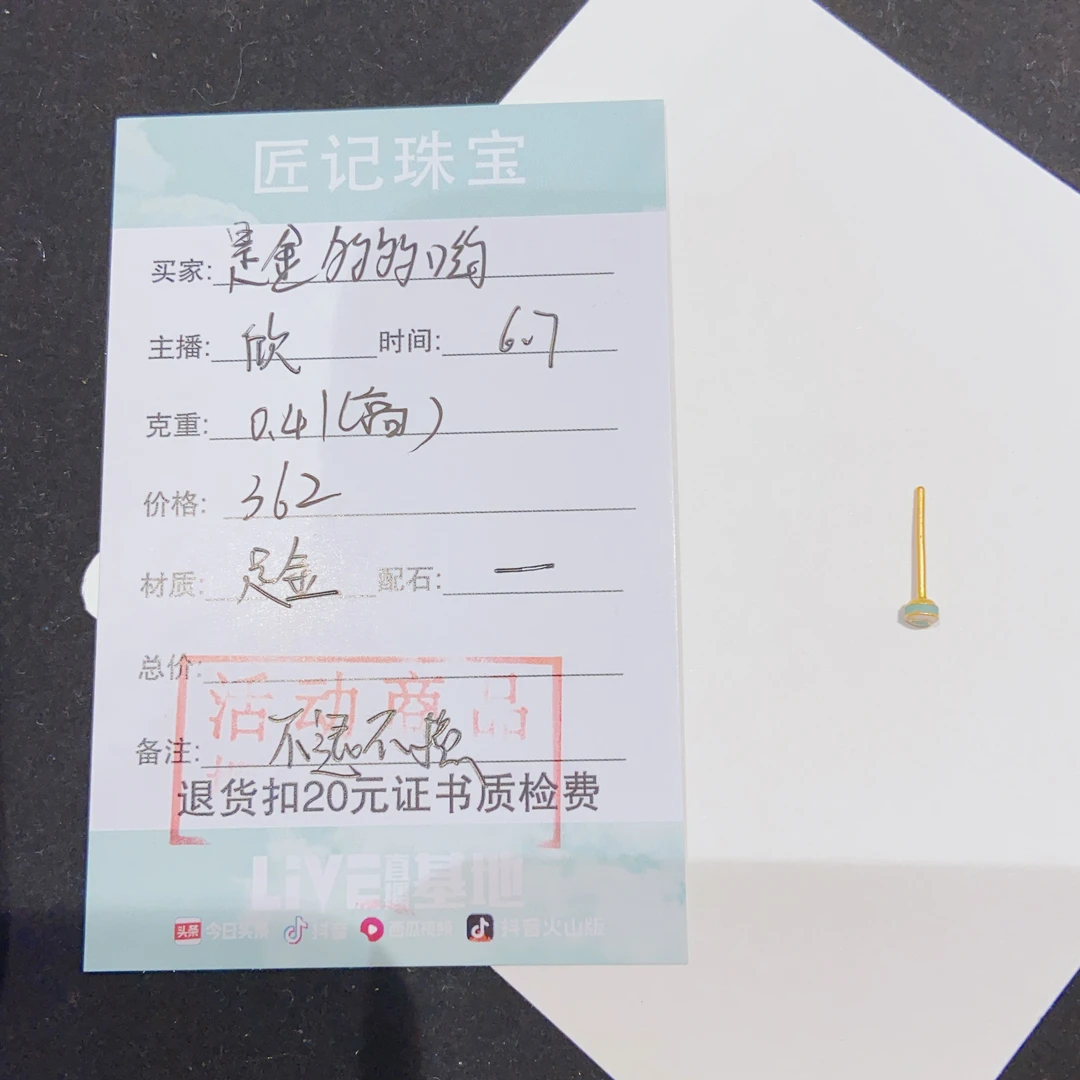 匠记珠宝
买家: 是金的的哟
主播: 欣 时间: 6.7
克重: 0.41(商)
价格: 362
材质: 足金 配石: 一
总价:
活动商品
备注: 不退不换
退货扣20元证书质检费
LiVE直播基地
头条 今日头条 抖音 西瓜视频 抖音火山版